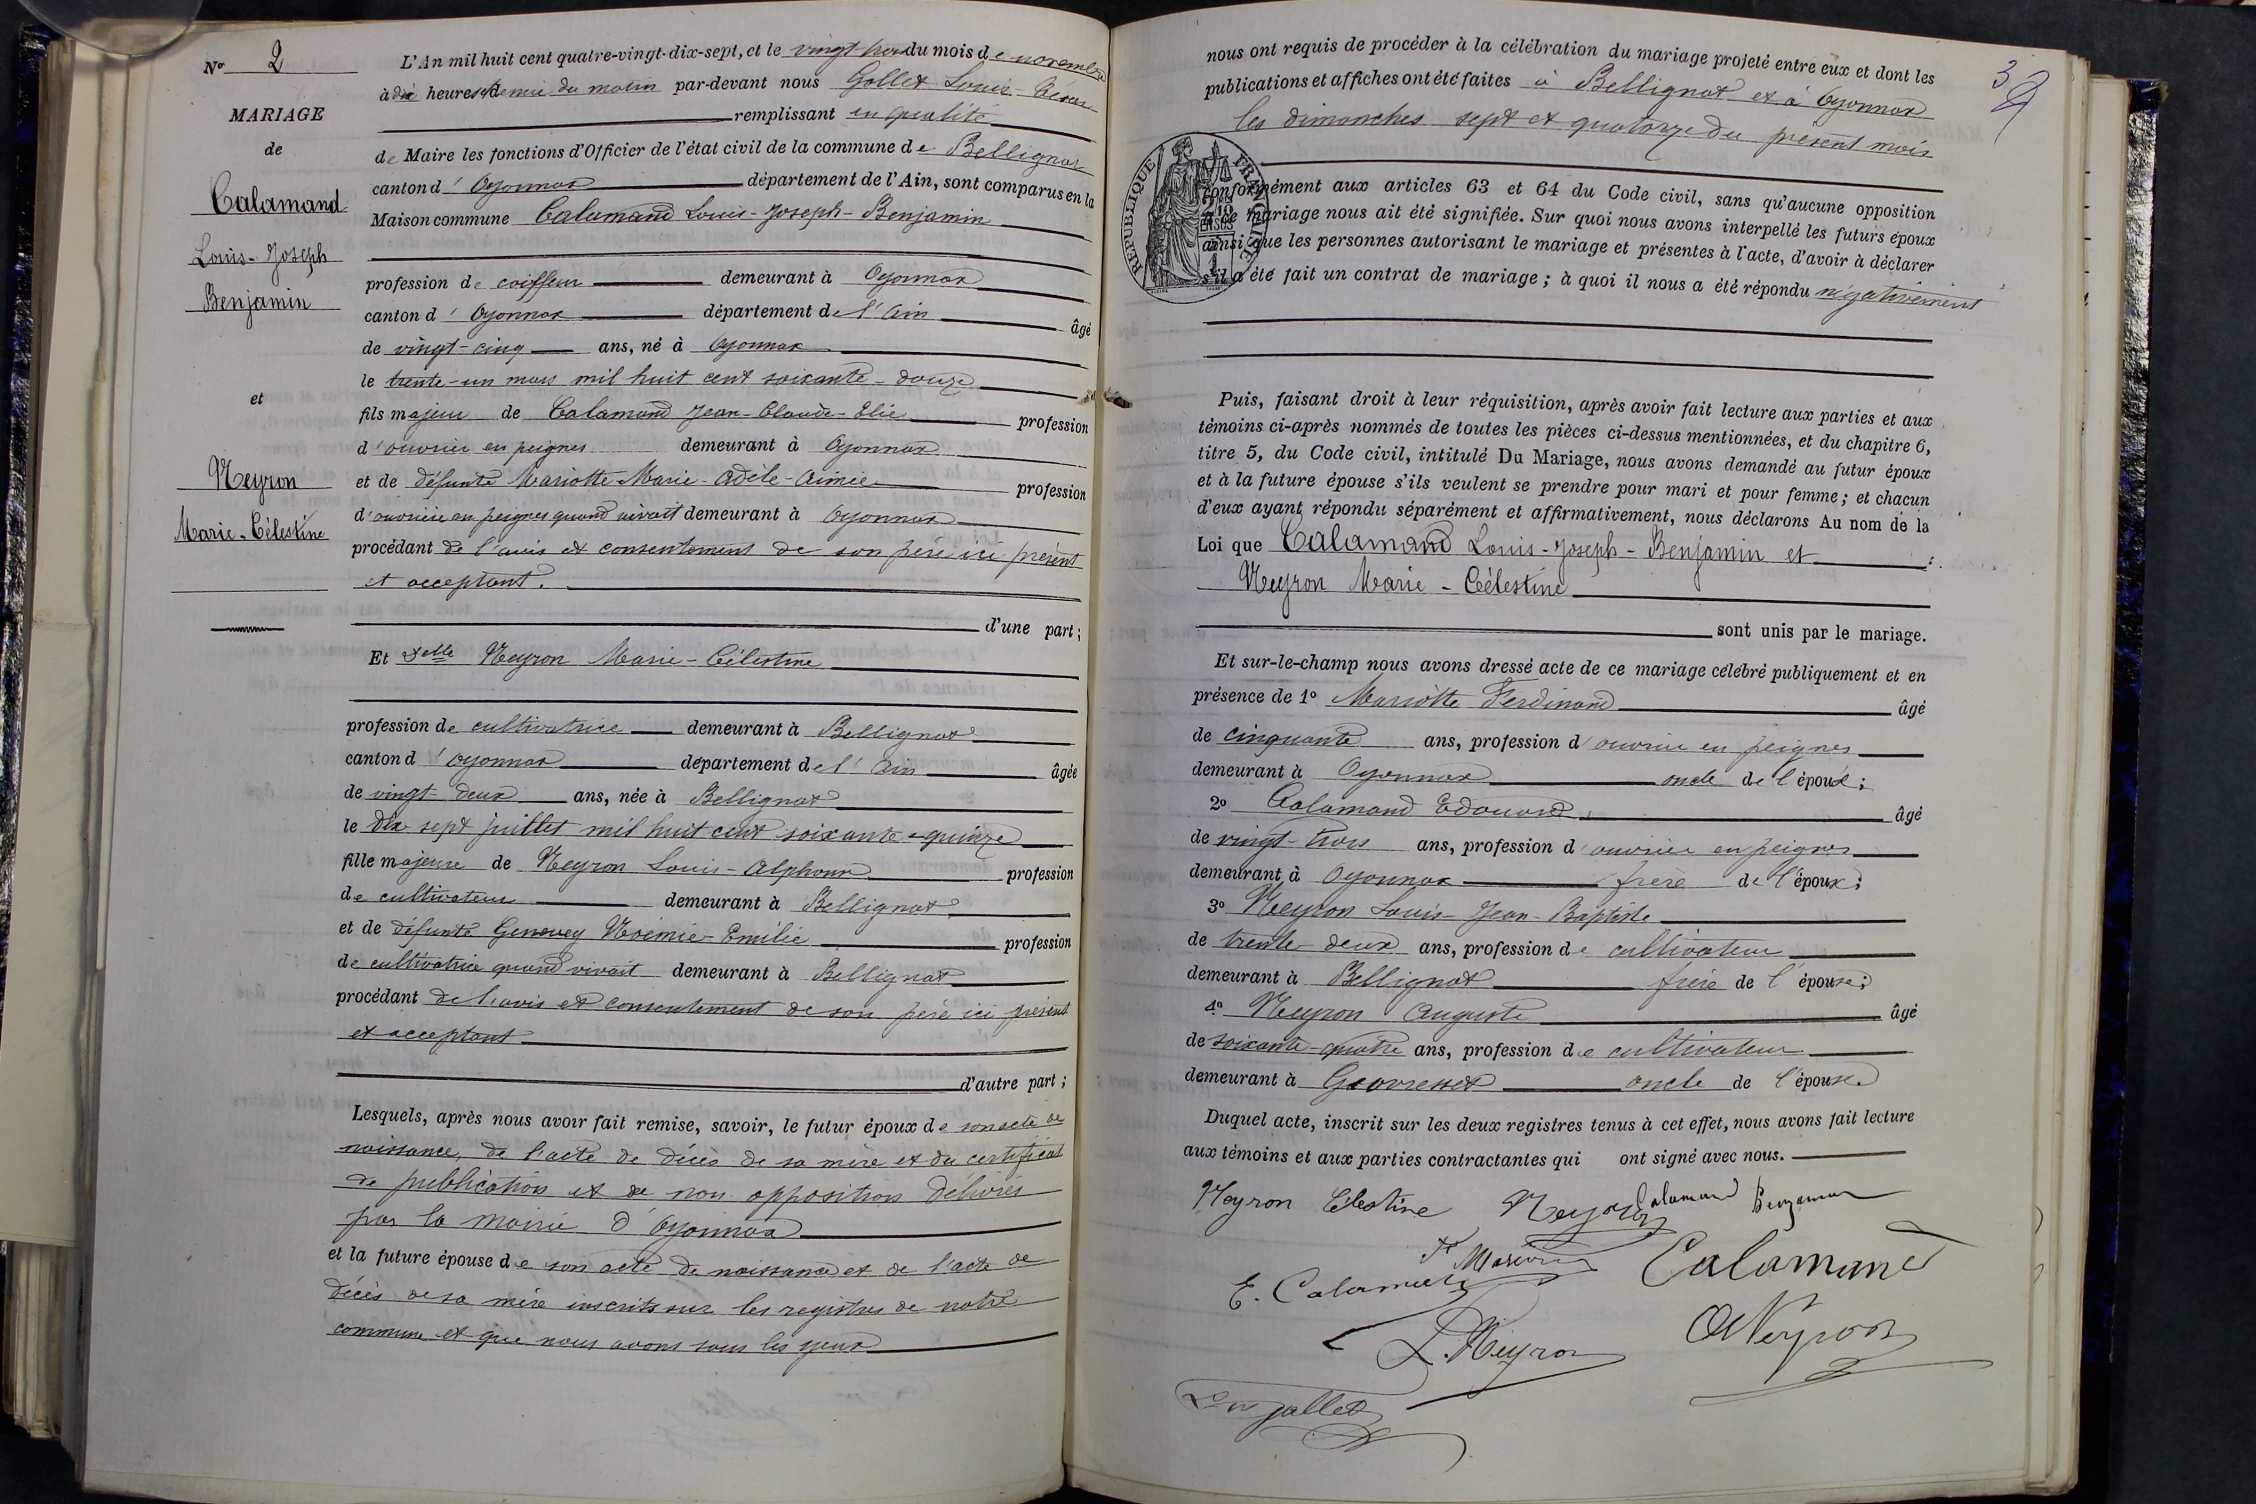 No 2
MARIAGE
de
Calamand
Louis-Joseph
Benjamin
et
Neyron
Marie-Célestine
L'An mil huit cent quatre-vingt-dix-sept, et le vingt trois du mois de novembre
à dix heures et demie du matin par-devant nous Gollet Louis-
remplissant en qualité
de Maire les fonctions d'Officier de l'état civil de la commune de Bellignat
canton d'Oyonnax département de l'Ain, sont comparus en la
Maison commune Calamand Louis-Joseph-Benjamin
profession de coiffeur demeurant à Oyonnax
canton d'Oyonnax département de l'Ain âgé
de vingt-cinq ans, né à Oyonnax
le trente-un mars mil huit cent soixante-douze
fils majeur de Calamand Jean-Claude-Elie profession
d'ouvrier en peignes demeurant à Oyonnax
et de défunte Mariotte Marie-Adèle-Aimée profession
d'ouvrière en peignes quand vivait demeurant à Oyonnax
procédant de l'avis et consentement de son père ici présent
et acceptant.
d'une part;
Et Delle Neyron Marie-Célestine
profession de cultivatrice demeurant à Bellignat
canton d'Oyonnax département de l'Ain âgée
de vingt-deux ans, née à Bellignat
le dix sept juillet mil huit cent soixante-quinze
fille majeure de Neyron Louis-Alphonse profession
de cultivateur demeurant à Bellignat
et de défunte Genevey Noémie-Emilie profession
de cultivatrice quand vivait demeurant à Bellignat
procédant de l'avis et consentement de son père ici présent
et acceptant
d'autre part;
Lesquels, après nous avoir fait remise, savoir, le futur époux de son acte de
naissance, de l'acte de décès de sa mère et du certificat
de publication et de non opposition délivrés
par la mairie d'Oyonnax
et la future épouse de son acte de naissance et de l'acte de
décès de sa mère inscrits sur les registres de notre
commune et que nous avons sous les yeux
3
nous ont requis de procéder à la célébration du mariage projeté entre eux et dont les
publications et affiches ont été faites à Bellignat et à Oyonnax
les dimanches sept et quatorze du présent mois
RÉPUBLIQUE FRANÇAISE
conformément aux articles 63 et 64 du Code civil, sans qu'aucune opposition
à ce mariage nous ait été signifiée. Sur quoi nous avons interpellé les futurs époux
ainsi que les personnes autorisant le mariage et présentes à l'acte, d'avoir à déclarer
s'il a été fait un contrat de mariage; à quoi il nous a été répondu négativement
Puis, faisant droit à leur réquisition, après avoir fait lecture aux parties et aux
témoins ci-après nommés de toutes les pièces ci-dessus mentionnées, et du chapitre 6,
titre 5, du Code civil, intitulé Du Mariage, nous avons demandé au futur époux
et à la future épouse s'ils veulent se prendre pour mari et pour femme; et chacun
d'eux ayant répondu séparément et affirmativement, nous déclarons Au nom de la
Loi que Calamand Louis-Joseph-Benjamin et
Neyron Marie-Célestine
sont unis par le mariage.
Et sur-le-champ nous avons dressé acte de ce mariage célébré publiquement et en
présence de 1º Mariotte Ferdinand âgé
de cinquante ans, profession d'ouvrier en peignes
demeurant à Oyonnax oncle de l'époux;
2º Calamand Edouard âgé
de vingt-trois ans, profession d'ouvrier en peignes
demeurant à Oyonnax frère de l'époux;
3º Neyron Louis-Jean-Baptiste
de trente-deux ans, profession de cultivateur
demeurant à Bellignat frère de l'épouse;
4º Neyron Auguste âgé
de soixante-quatre ans, profession de cultivateur
demeurant à Géovresset oncle de l'épouse
Duquel acte, inscrit sur les deux registres tenus à cet effet, nous avons fait lecture
aux témoins et aux parties contractantes qui ont signé avec nous.
Neyron Célestine Neyron Calamand Benjamin
E. Calamand Calamand
L. Neyron A Neyron
Gollet